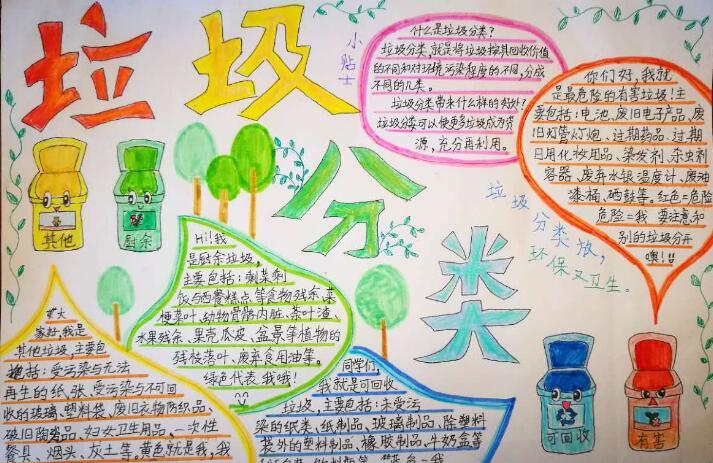 垃圾分类
小贴士
什么是垃圾分类？
垃圾分类，就是将垃圾按其回收价值
的不同和对环境污染程度的不同，分成
不同的几类。
垃圾分类带来什么样的好处？
垃圾分类可以使更多垃圾成为资
源，充分再利用。
你们好，我就
是最危险的有害垃圾！主
要包括：电池、废旧电子产品、废
旧灯管灯炮、过期药品、过期
日用化妆用品、染发剂、杀虫剂
容器、废弃水银温度计、废油
漆桶、硒鼓等。红色=危险
危险=我 要注意和
别的垃圾分开
噢！！
垃圾
分类放，
环保又卫生。
其他
厨余
Hi!我
是厨余垃圾，
主要包括：剩菜剩
饭与西餐糕点等食物残余、菜
梗菜叶、动物骨骼内脏、茶叶渣、
水果残余、果壳瓜皮、盆景等植物的
残枝落叶、废弃食用油等。
绿色代表我哦！
大
家好，我是
其他垃圾，主要包
括：受污染与无法
再生的纸张、受污染与不可回
收的玻璃、塑料袋、废旧衣物防织品、
破旧陶瓷品、妇女卫生用品、一次性
餐具、烟头、灰土等。黄色就是我，我
同学们，
我就是可回收
垃圾，主要包括：未受污
染的纸类、纸制品、玻璃制品、除塑料
袋外的塑料制品、橡胶制品、牛奶盒等
可回收
有害